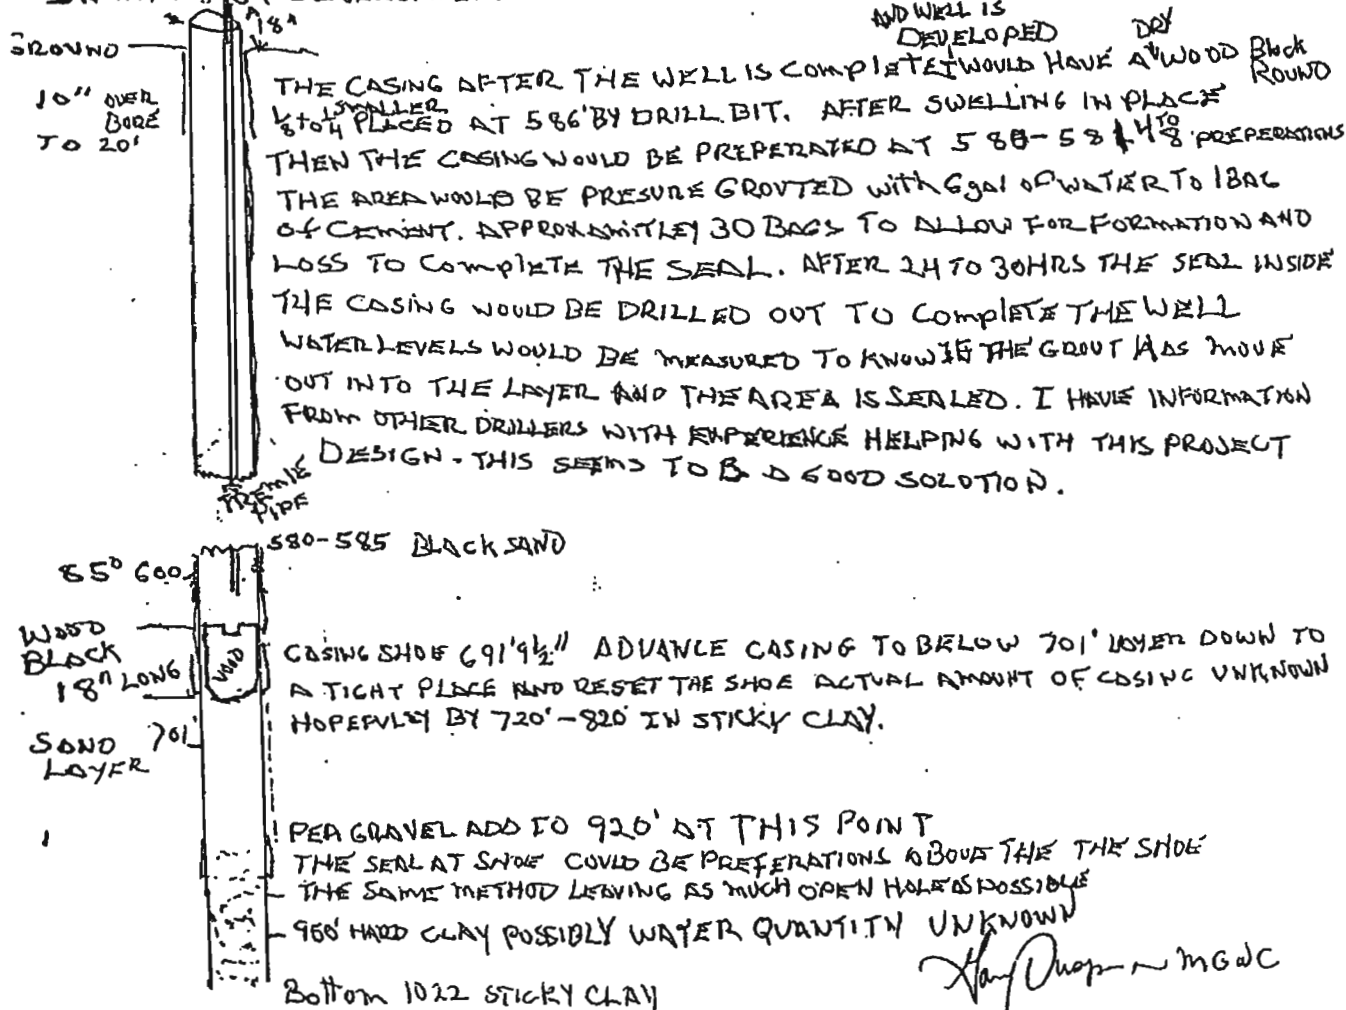 18"
AND WELL IS
DEVELOPED
DRY
GROUND
10" OVER
BORE
TO 20'
THE CASING AFTER THE WELL IS COMPLETE I WOULD HAVE A WOOD Block
ROUND
1/8 to 1/4 SMALLER PLACED AT 586' BY DRILL BIT. AFTER SWELLING IN PLACE
THEN THE CASING WOULD BE PREPERATED AT 580-581 4 TO 8 PREPERATIONS
THE AREA WOULD BE PRESURE GROUTED with 6gal OF WATER TO 1 BAG
Of CEMENT. APPROXAMITLEY 30 BAGS TO ALLOW FOR FORMATION AND
LOSS TO COmplETE THE SEAL. AFTER 24 TO 30HRS THE SEAL INSIDE
THE CASING WOULD BE DRILLED OUT TO COmplETE THE WELL
WATER LEVELS WOULD BE MEASURED TO KNOW IF THE GROUT HAS MOVE
OUT INTO THE LAYER AND THE AREA IS SEALED. I HAVE INFORMATION
FROM OTHER DRILLERS WITH EXPERIENCE HELPING WITH THIS PROJECT
DESIGN. THIS SEEMS TO B A GOOD SOLOTION.
TREMIE
PIPE
580-585 BLACK SAND
85° 600
WOOD
BLACK
18" LONG
WOOD
CASING SHOE 691' 9 1/2" ADVANCE CASING TO BELOW 701' LAYER DOWN TO
A TIGHT PLACE AND RESET THE SHOE ACTUAL AMOUNT OF CASING UNKNOWN
HOPEFULLY BY 720'-820' IN STICKY CLAY.
SAND 701'
LAYER
PEA GRAVEL ADD TO 920' AT THIS POINT
THE SEAL AT SHOE COULD BE PREFERATIONS ABOVE THE THE SHOE
THE SAME METHOD LEAVING AS MUCH OPEN HOLE AS POSSIBLE
960' HARD CLAY POSSIBLY WATER QUANTITY UNKNOWN
MGWC
Bottom 1022 STICKY CLAY